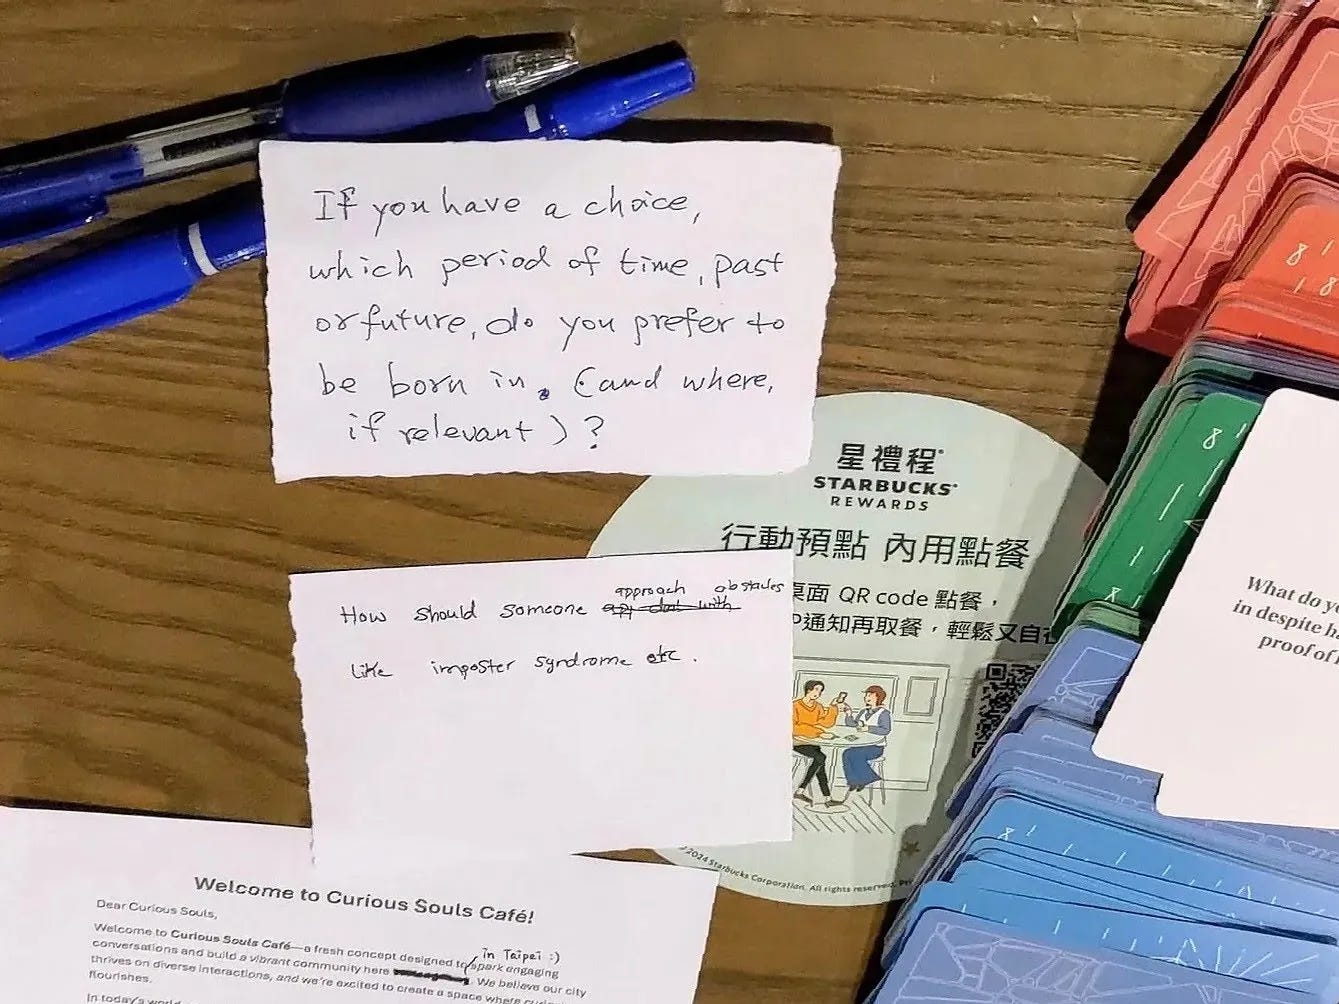 If you have a choice,
which period of time, past
or future, do you prefer to
be born in. (and where,
if relevant)?
星禮程
STARBUCKS
REWARDS
行動預點 內用點餐
桌面 QR code 點餐，
通知再取餐，輕鬆又自在
© 2024 Starbucks Corporation. All rights reserved.
approach obstacles
How should someone
like imposter syndrome etc.
What do
in despite
proof of
Welcome to Curious Souls Café!
Dear Curious Souls,
in Taipei :)
Welcome to Curious Souls Café—a fresh concept designed to spark engaging
conversations and build a vibrant community here. We believe our city
thrives on diverse interactions, and we're excited to create a space where
flourishes.
In today's